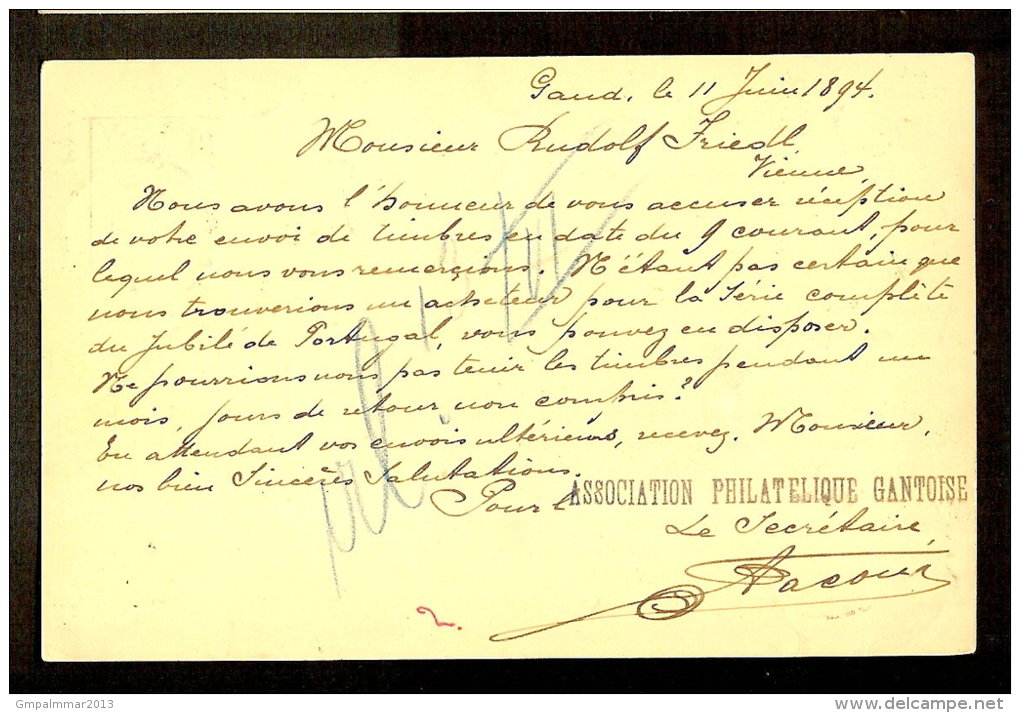 Gand, le 11 Juin 1894.
Monsieur Rudolf Friedl
Vienne
Nous avons l'honneur de vous accuser réception
de votre envoi de timbres en date du 9 courant, pour
lequel nous vous remerçions. N'étant pas certain que
nous trouverions un acheteur pour la Série complète
du Jubilé de Portugal, vous pouvez en disposer.
Ne pourrions nous pas tenir les timbres pendant un
mois, jours de retour non compris?
En attendant vos envois ultérieurs, recevez, Monsieur,
nos bien Sincères Salutations.
Pour l'ASSOCIATION PHILATELIQUE GANTOISE
Le Secrétaire,
2.
Gmpalmmar2013
delcampe.net